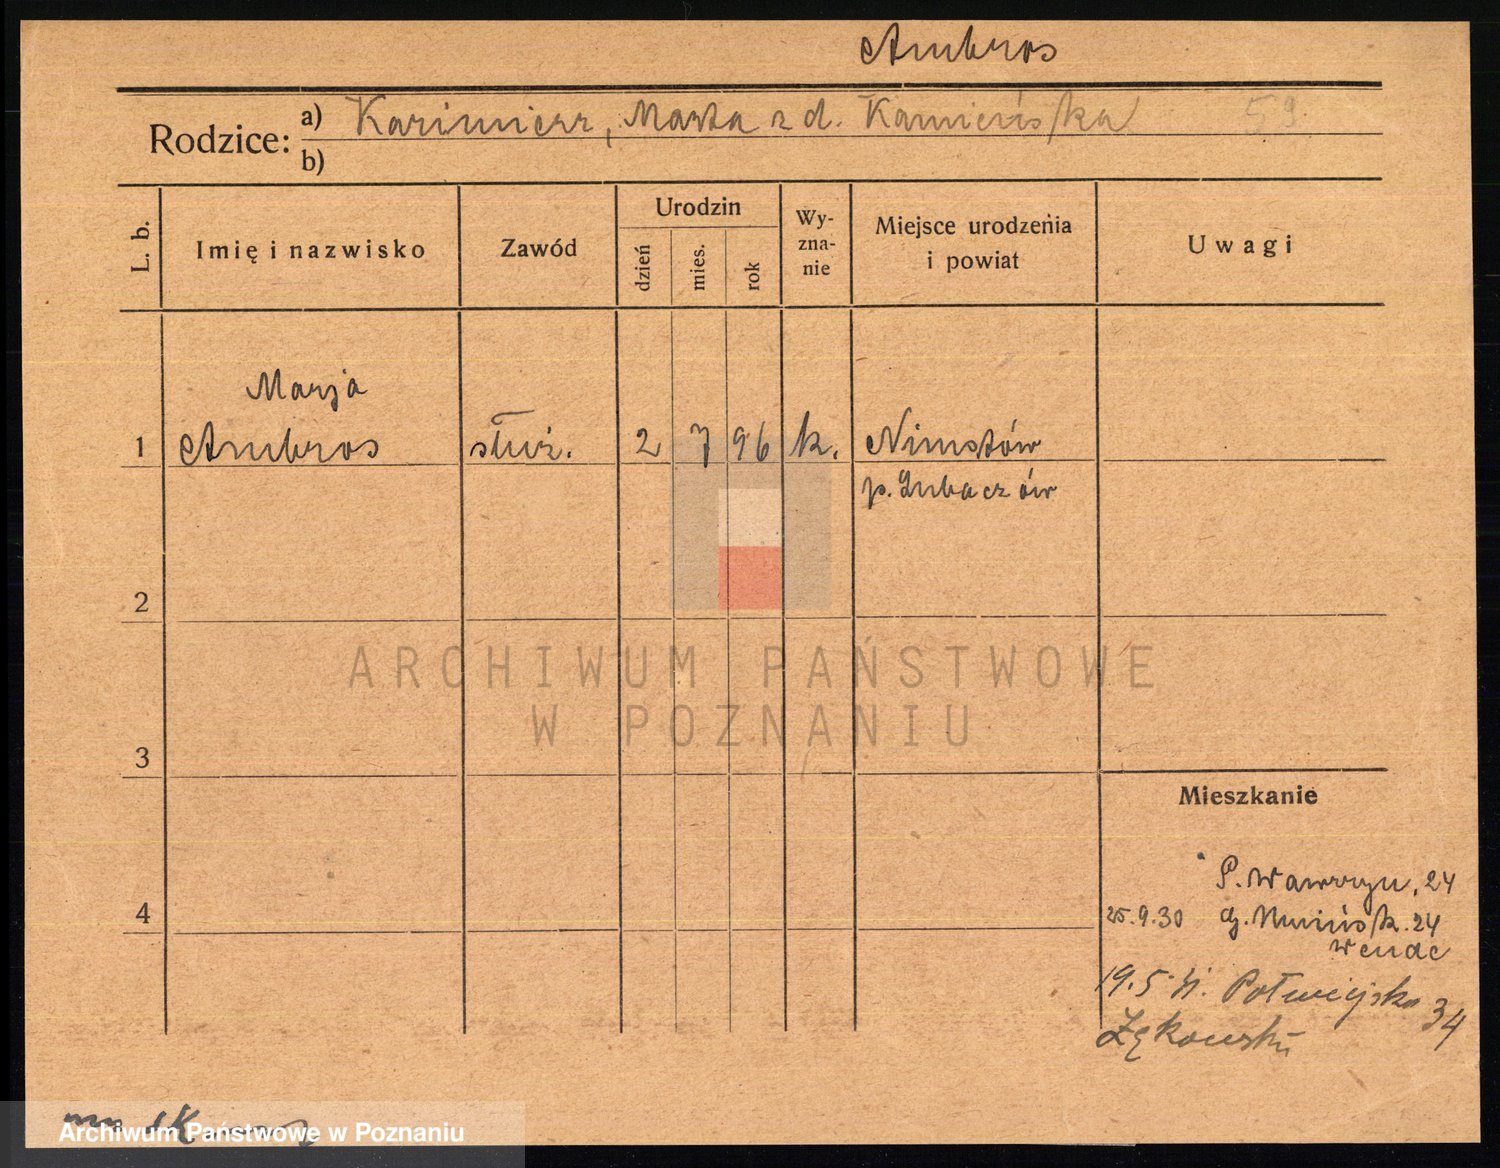 Ambros
Rodzice: a) Kazimierz, Marta z d. Kamieńska 59
b)
L. b.
Imię i nazwisko
Zawód
Urodzin
dzień
mies.
rok
Wy-
zna-
nie
Miejsce urodzenia
i powiat
Uwagi
Marja
1 Ambros służ. 2 7 96 k. Nimstów
p. Lubaczów
2
ARCHIWUM PAŃSTWOWE
W POZNANIU
3
Mieszkanie
P. Wawrzyn, 24
4
25.9.30 24
19.5. Półwiejska 34
Archiwum Państwowe w Poznaniu